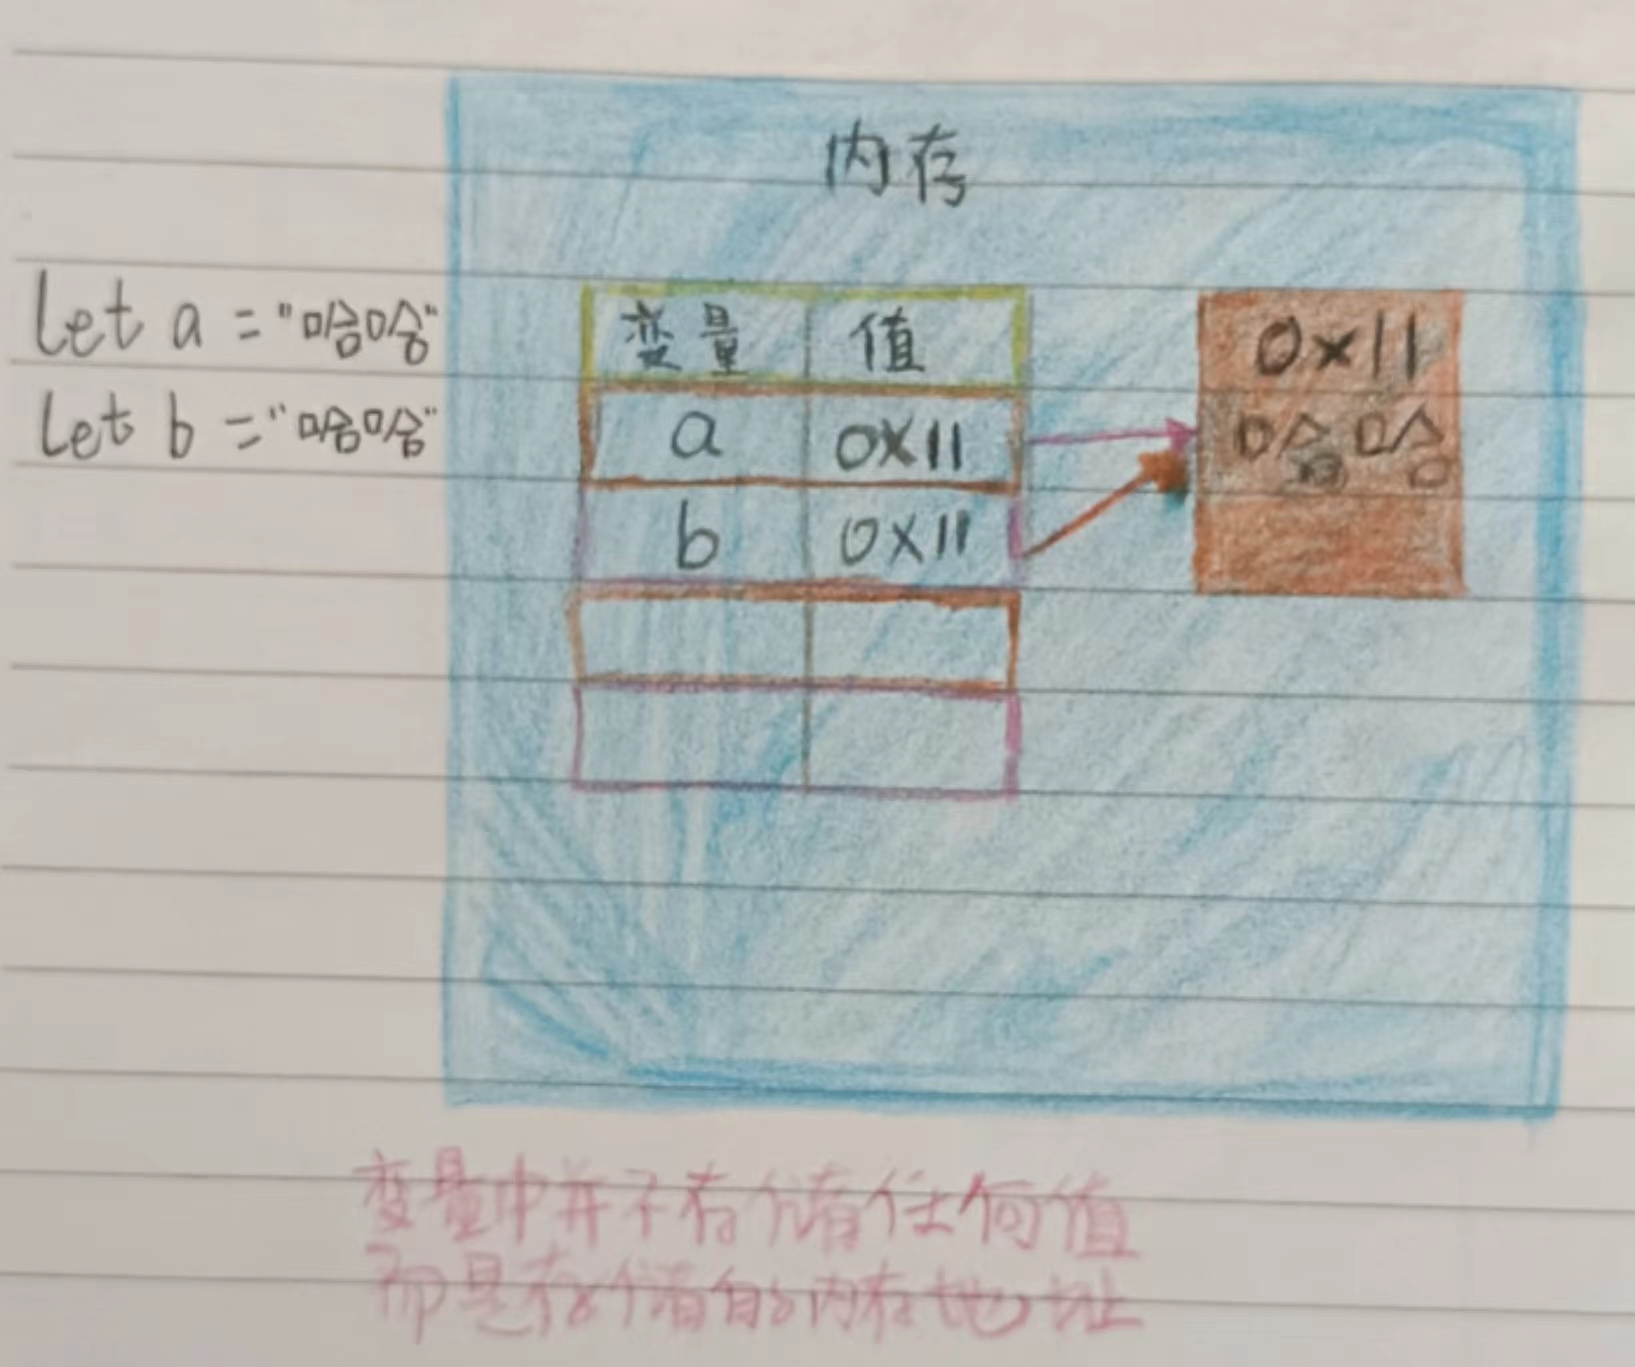 内存
let a = "哈哈"
let b = "哈哈"
变量 值
a 0x11
b 0x11
0x11
哈哈
变量中并不存储任何值
而是存储的内存地址